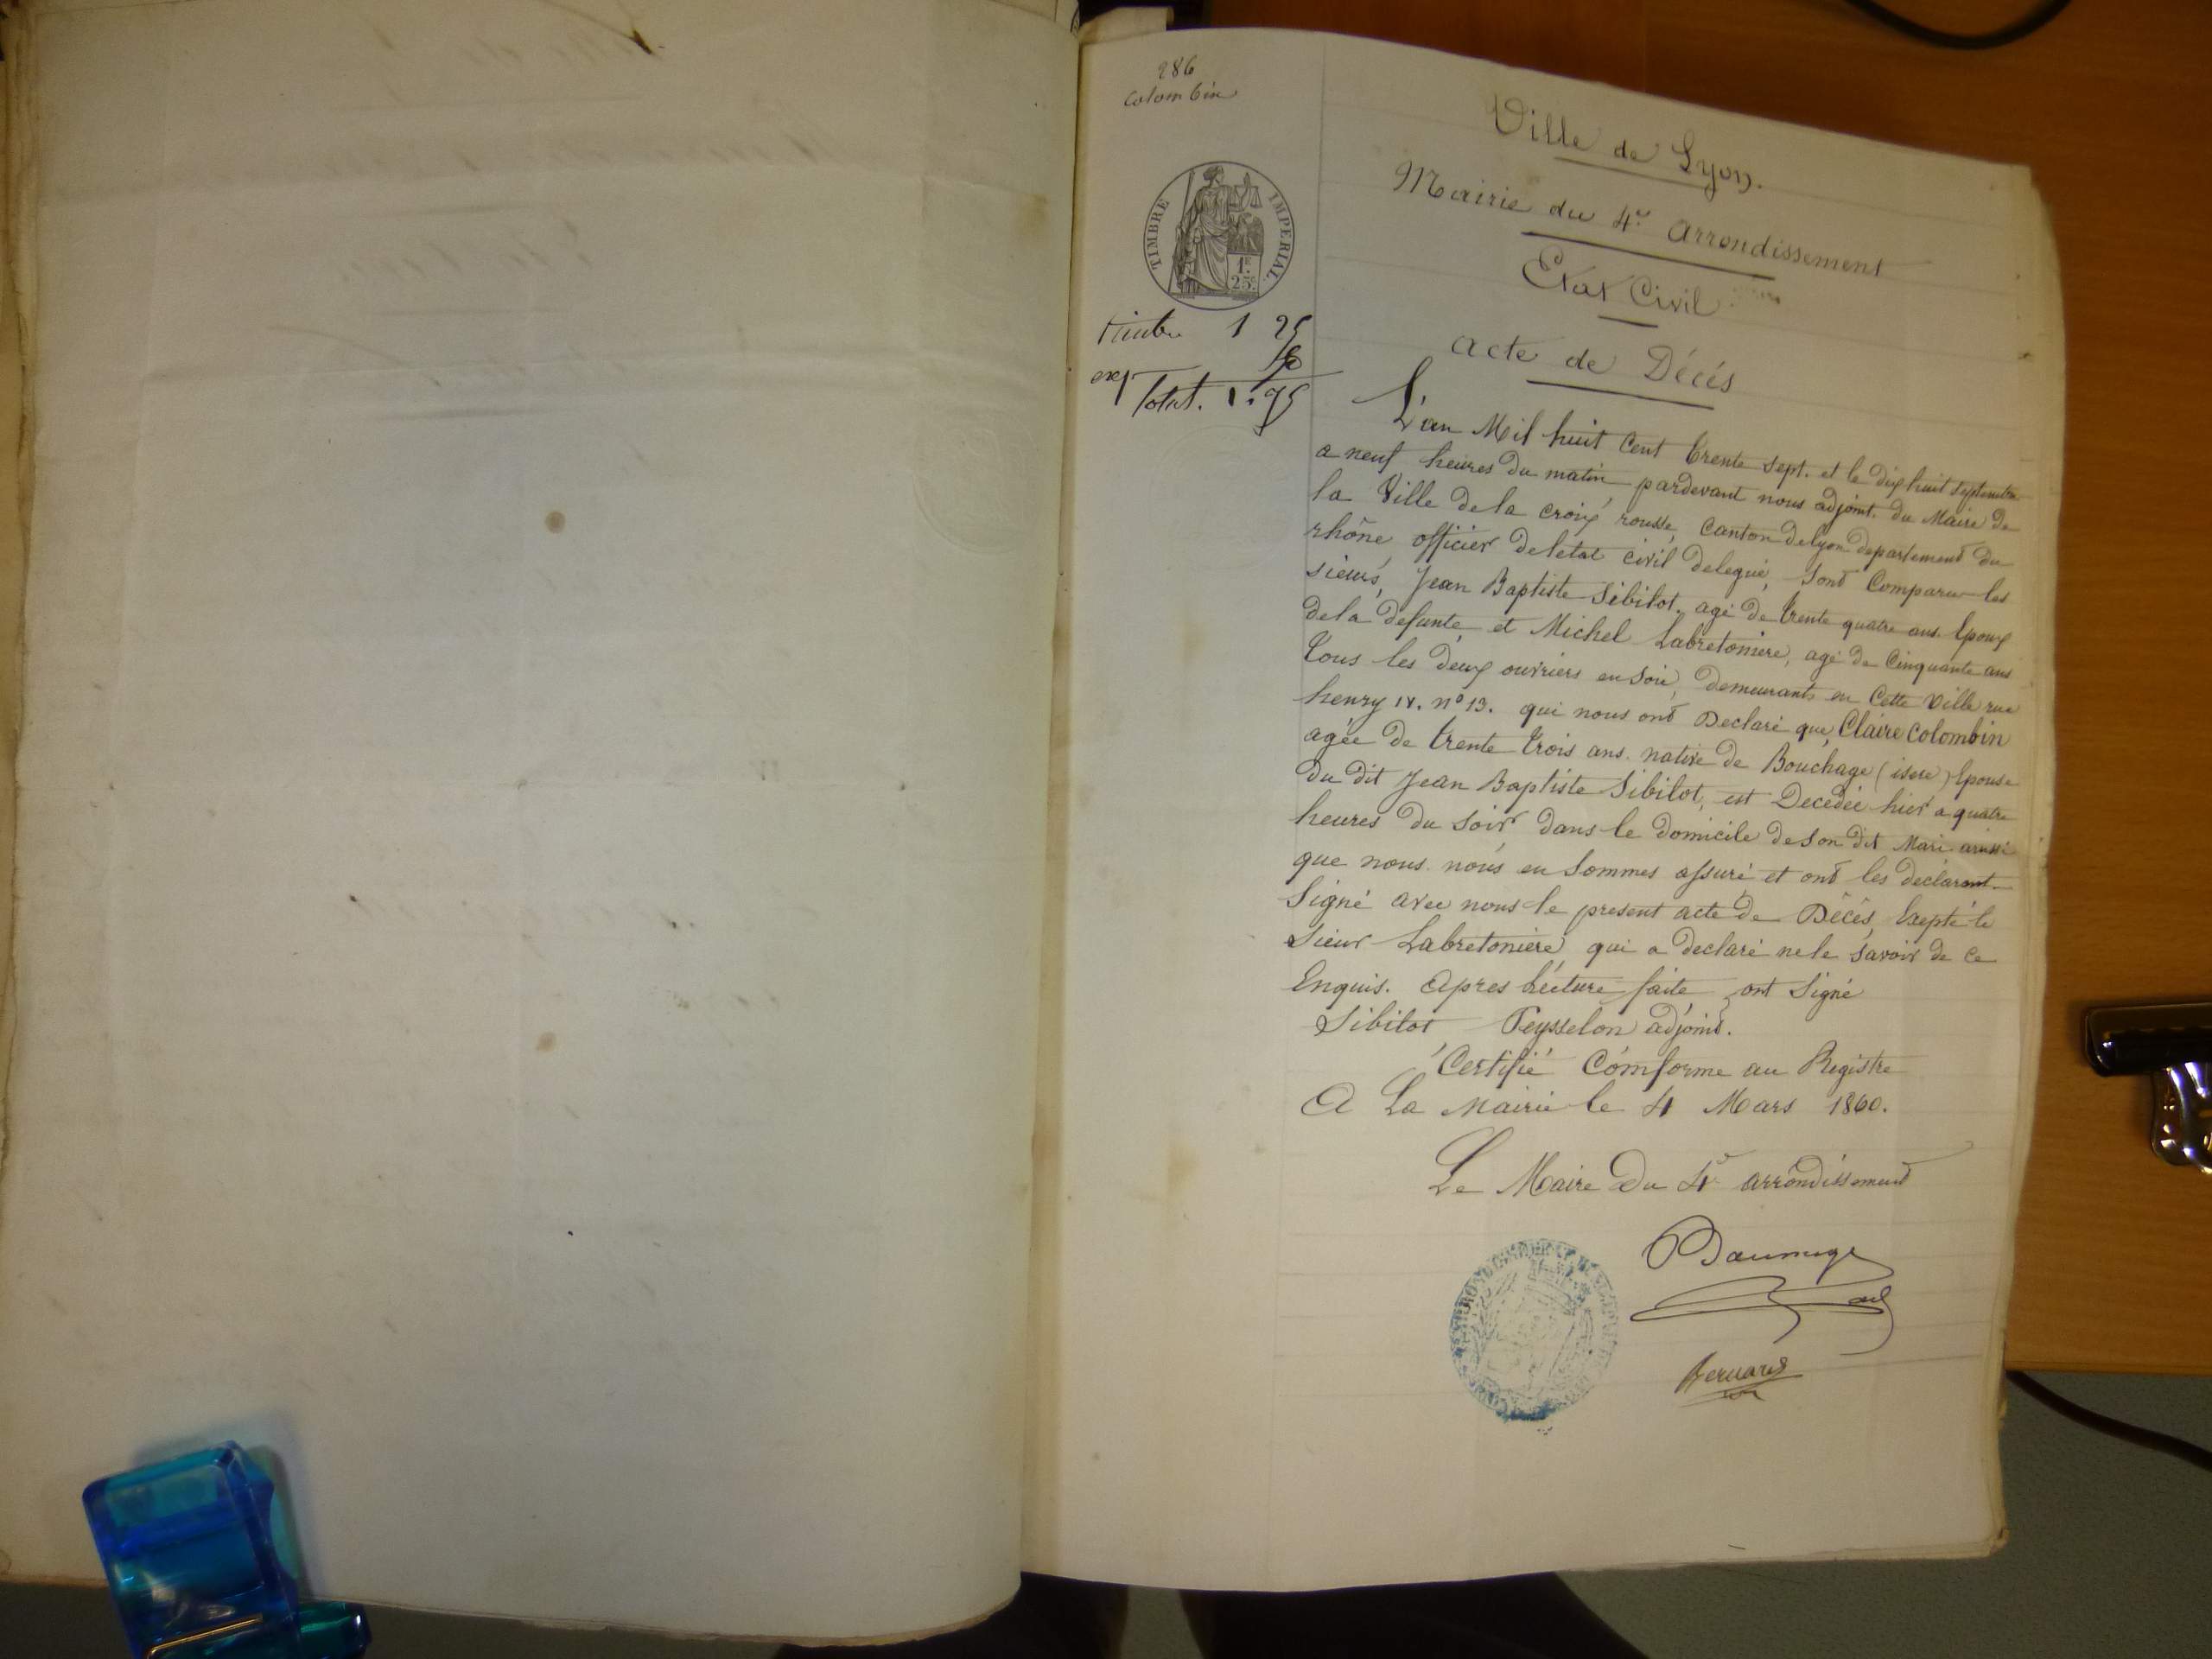 286
Colombin
TIMBRE IMPERIAL
1F
25c
timbre 1 25
50
exp
Total. 1.75
Ville de Lyon.
Mairie du 4e. arrondissement
Etat Civil
acte de Décés
L'an Mil huit Cent trente sept. et le dix huit septembre
a neuf heures du matin, pardevant nous adjoint. du Maire de
la Ville de la croix rousse, Canton de lyon departement du
rhône officier de letat civil delegué, sont Comparu les
sieurs, Jean Baptiste Sibilot, agé de trente quatre ans. Epoux
de la defunte, et Michel Labretoniere, agé de Cinquante ans
tous les deux ouvriers en Soie, demeurants en Cette Ville rue
henry IV. n° 13. qui nous ont Declaré que, Claire Colombin
agée de trente trois ans. native de Bouchage (isere) Epouse
du dit Jean Baptiste Sibilot, est Decedée hier a quatre
heures du Soir dans le domicile de son dit Mari ainssi
que nous nous en Sommes assuré et ont les declarant
Signé avec nous le present acte de Décès, Exepté le
Sieur Labretoniere, qui a declaré ne le savoir de ce
Enquis. Apres Lecture faite, ont Signé
Sibilot Peysselon adjoint.
Certifié Comforme au Registre
A La Mairie le 4 Mars 1860.
Le Maire Du 4e arrondissement